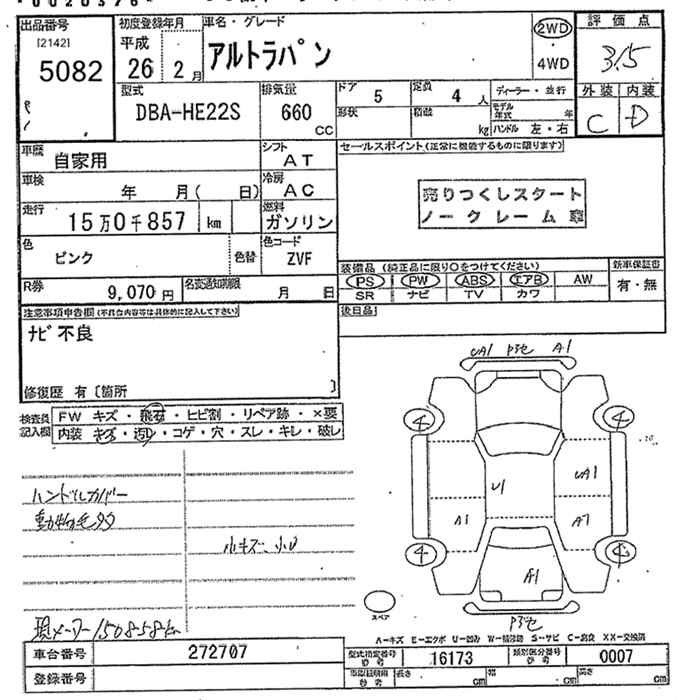 出品番号
[2142]
5082
初度登録年月
平成
26 2月
車名・グレード
アルトラパン
2WD
4WD
評価点
3.5
外装 内装
C D
型式
DBA-HE22S
排気量
660
cc
ドア
5
定員
4人
形状
積載
kg
ディーラー・並行
モデル年式 年
ハンドル 左・右
車歴
自家用
シフト
AT
車検
年 月( 日)
冷房
AC
走行
15万0千857 km
燃料
ガソリン
色
ピンク
色替
色コード
ZVF
R券
9,070円
名変通知期限
月 日
セールスポイント(正常に機能するものに限ります)
売りつくしスタート
ノークレーム車
装備品(純正品に限り○をつけてください)
PS PW ABS エアB AW
SR ナビ TV カワ
新車保証書
有・無
後日品
注意事項申告欄(不具合内容等は具体的に記入して下さい)
ナビ不良
修復歴 有〔箇所 〕
検査員記入欄
FW キズ・飛石・ヒビ割・リペア跡・×要
内装 キズ・汚れ・コゲ・穴・スレ・キレ・破レ
ハンドルカバー
動物毛多
小キズ、小U
現メーター150858km
A1
4 4
UA1
U1
A1
A1
4 4
スペア
A-キズ E-エクボ U-凹み W-補修跡 S-サビ C-腐食 XX-交換済
車台番号
272707
登録番号
型式指定番号
16173
類別区分番号
0007
長さ cm
幅 cm
高さ cm